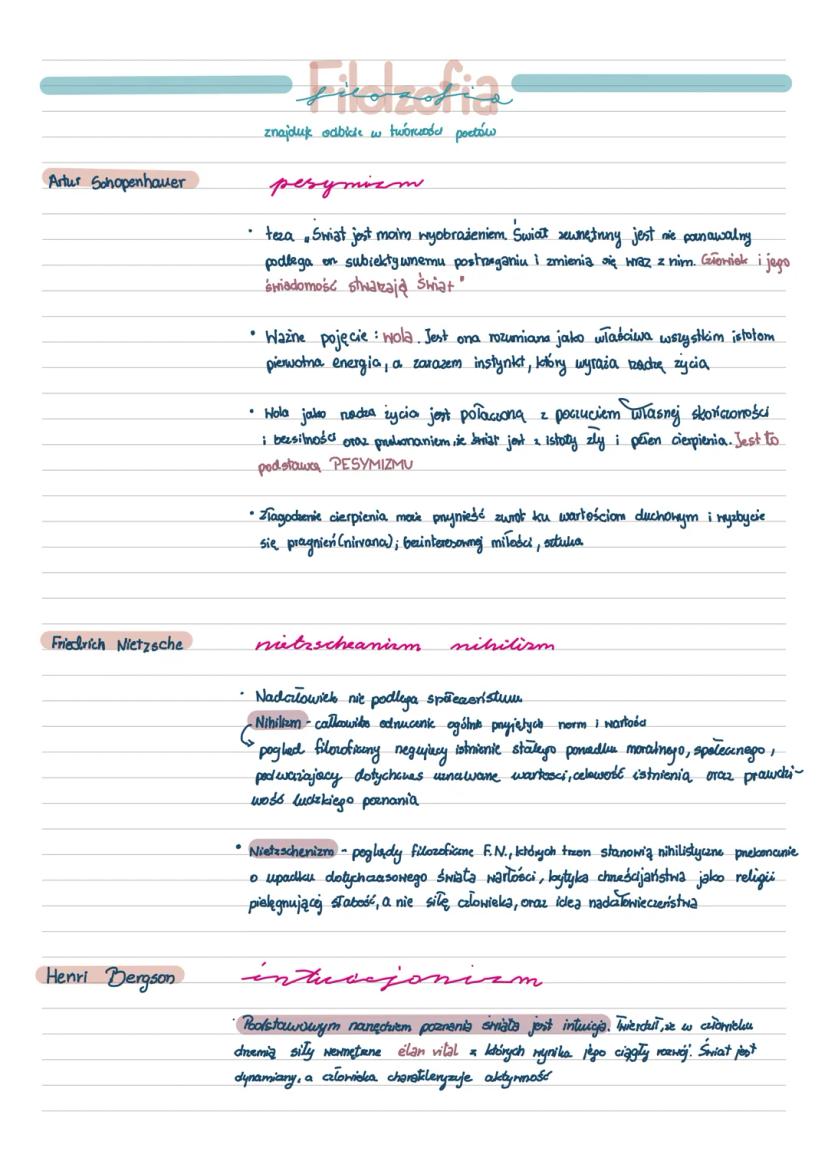 Filolzofia
filozofia
znajduk odbicie w twórczości poetów
Artur Schopenhauer
pesymizm
• teza „Świat jest moim wyobrażeniem. Świat zewnętrzny jest nie poznawalny
podlega on subiektywnemu postrzeganiu i zmienia się wraz z nim. Człowiek i jego
świadomość stwarzają świat"
• Ważne pojęcie: wola. Jest ona rozumiana jako właściwa wszystkim istotom
pierwotna energia, a zarazem instynkt, który wyraża rządzę życia
• Wola jako rządza życia jest połączoną z poczuciem własnej skończoności
i bezsilności oraz przekonaniem, że świat jest z istoty zły i pełen cierpienia. Jest to
podstawą PESYMIZMU
• Złagodzenie cierpienia może przynieść zwrot ku wartościom duchowym i wyzbycie
się pragnień (nirvana); bezinteresownej miłości, sztuka
Friedrich Nietzsche
nietzscheanizm nihilizm
• Nadczłowiek nie podlega społeczeństwu
Nihilizm - całkowite odrzucenie ogólnie przyjętych norm i wartości
pogląd filozoficzny negujący istnienie stałego porządku moralnego, społecznego,
podważający dotychczas uznawane wartości, celowość istnienia oraz prawdzi-
wość ludzkiego poznania
• Nietzschenizm - poglądy filozoficzne F.N., których trzon stanowią nihilistyczne przekonanie
o upadku dotychczasowego świata wartości, krytyka chrześcijaństwa jako religii
pielęgnującej słabość, a nie siłę człowieka, oraz idea nadczłowieczeństwa
Henri Bergson
intuicjonizm
• Podstawowym narzędziem poznania świata jest intuicja. Twierdził, że w człowieku
drzemią siły wewnętrzne élan vital z których wynika jego ciągły rozwój. Świat jest
dynamiany, a człowieka charakteryzuje aktywność